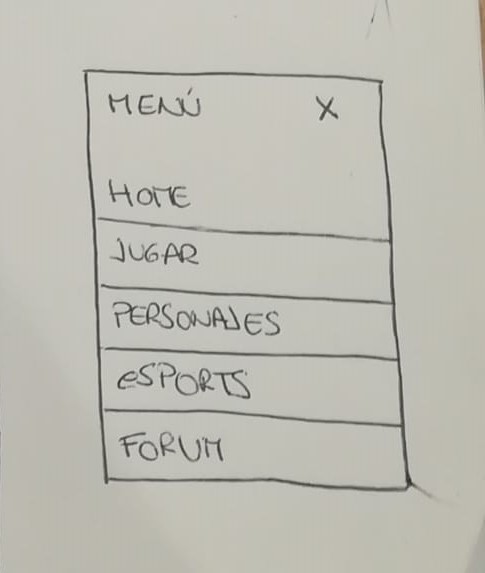 MENÚ X
HOME
JUGAR
PERSONAJES
eSPORTS
FORUM